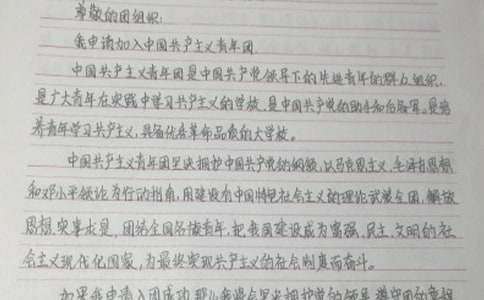 尊敬的团组织:
我申请加入中国共产主义青年团.
中国共产主义青年团是中国共产党领导下的先进青年的群众组织,
是广大青年在实践中学习共产主义的学校,是中国共产党的助手和后备军.是培
养青年学习共产主义,具备优秀革命品质的大学校。
中国共产主义青年团坚决拥护中国共产党的纲领,以马克思主义,毛泽东思想
和邓小平理论为行动指南,用建设有中国特色社会主义的理论武装全团,解放
思想,实事求是,团结全国各族青年,把我国建设成为富强,民主,文明的社
会主义现代化国家,为最终实现共产主义的社会制度而奋斗。
如果我申请入团成功,那么我将会坚决拥护党的领导,遵守团的章程